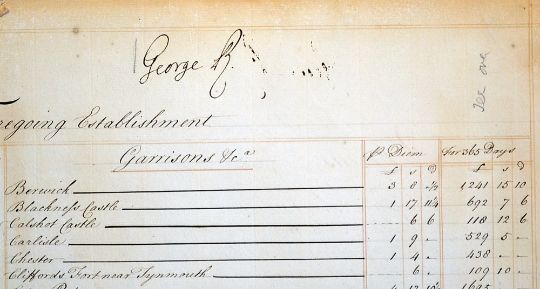 George R.
regoing Establishment
Garrisons &c.a
P Diem For 365 Days
£ s D £ s D
Berwick 3 8 -½ 1241 15 10
Blackness Castle 1 17 11¼ 692 7 6
Calshot Castle 6 6 118 12 6
Carlisle 1 9 - 529 5 -
Chester 1 4 - 438 - -
Cliffords Fort near Tynmouth 6 - 109 10 -